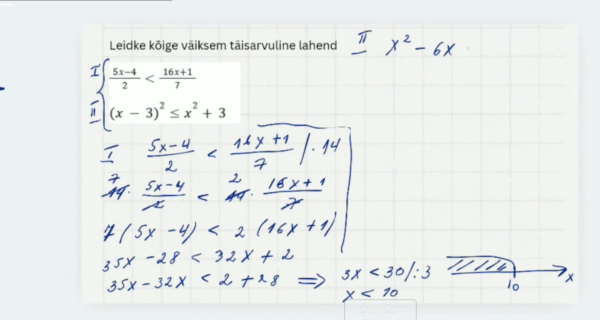 Leidke kõige väiksem täisarvuline lahend
II x² - 6x
I 5x-4/2 < 16x+1/7
II (x - 3)² ≤ x² + 3
I 5x-4/2 < 16x+1/7 /· 14
7 14· 5x-4/2 < 2 14· 16x+1/7
7(5x-4) < 2(16x+1)
35x - 28 < 32x + 2
35x - 32x < 2 + 28 ⇒ 3x < 30 /:3
x < 10
10 x